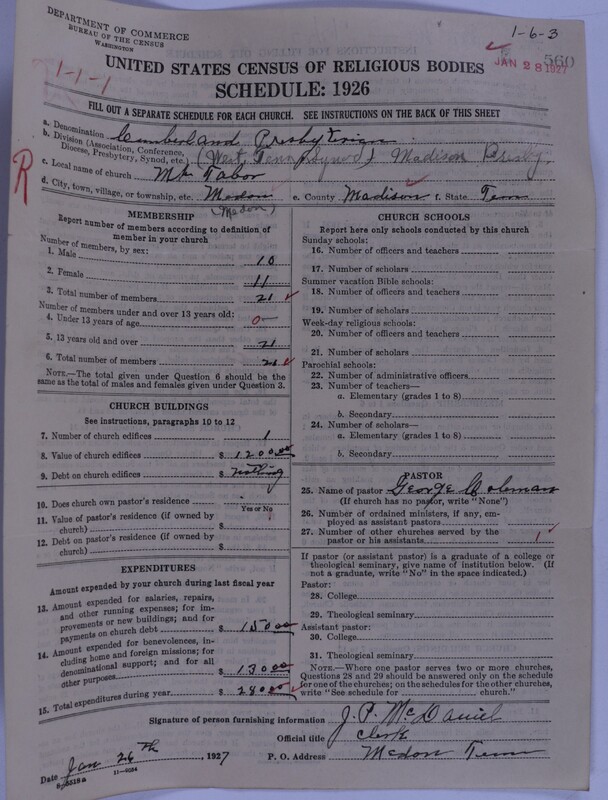 DEPARTMENT OF COMMERCE
BUREAU OF THE CENSUS
WASHINGTON
1-6-3
1-1-1
560
JAN 28 1927
UNITED STATES CENSUS OF RELIGIOUS BODIES
SCHEDULE: 1926
FILL OUT A SEPARATE SCHEDULE FOR EACH CHURCH. SEE INSTRUCTIONS ON THE BACK OF THIS SHEET
R
a. Denomination Cumberland Presbyterian
b. Division (Association, Conference, Diocese, Presbytery, Synod, etc.) (West Tenn Synod) Madison Presby.
c. Local name of church Mt Tabor
d. City, town, village, or township, etc. Medon e. County Madison f. State Tenn
(Medon)
MEMBERSHIP
Report number of members according to definition of member in your church
Number of members, by sex:
1. Male 10
2. Female 11
3. Total number of members 21
Number of members under and over 13 years old:
4. Under 13 years of age 0
5. 13 years old and over 21
6. Total number of members 21
NOTE.—The total given under Question 6 should be the same as the total of males and females given under Question 3.
CHURCH BUILDINGS
See instructions, paragraphs 10 to 12
7. Number of church edifices 1
8. Value of church edifices $ 1200.00
9. Debt on church edifices $ nothing
10. Does church own pastor's residence
Yes or No
11. Value of pastor's residence (if owned by church) $
12. Debt on pastor's residence (if owned by church) $
EXPENDITURES
Amount expended by your church during last fiscal year
13. Amount expended for salaries, repairs, and other running expenses; for improvements or new buildings; and for payments on church debt $ 150.00
14. Amount expended for benevolences, including home and foreign missions; for denominational support; and for all other purposes $ 130.00
15. Total expenditures during year $ 280.00
CHURCH SCHOOLS
Report here only schools conducted by this church
Sunday schools:
16. Number of officers and teachers
17. Number of scholars
Summer vacation Bible schools:
18. Number of officers and teachers
19. Number of scholars
Week-day religious schools:
20. Number of officers and teachers
21. Number of scholars
Parochial schools:
22. Number of administrative officers
23. Number of teachers—
a. Elementary (grades 1 to 8)
b. Secondary
24. Number of scholars—
a. Elementary (grades 1 to 8)
b. Secondary
PASTOR
25. Name of pastor George Coleman
(If church has no pastor, write "None")
26. Number of ordained ministers, if any, employed as assistant pastors
27. Number of other churches served by the pastor or his assistants 1
If pastor (or assistant pastor) is a graduate of a college or theological seminary, give name of institution below. (If not a graduate, write "No" in the space indicated.)
Pastor:
28. College
29. Theological seminary
Assistant pastor:
30. College
31. Theological seminary
NOTE.—Where one pastor serves two or more churches, Questions 28 and 29 should be answered only on the schedule for one of the churches; on the schedules for the other churches, write "See schedule for church."
Signature of person furnishing information J. P. McDaniel
Official title Clerk
Date Jan 26th, 1927 P. O. Address Medon Tenn
11-9084